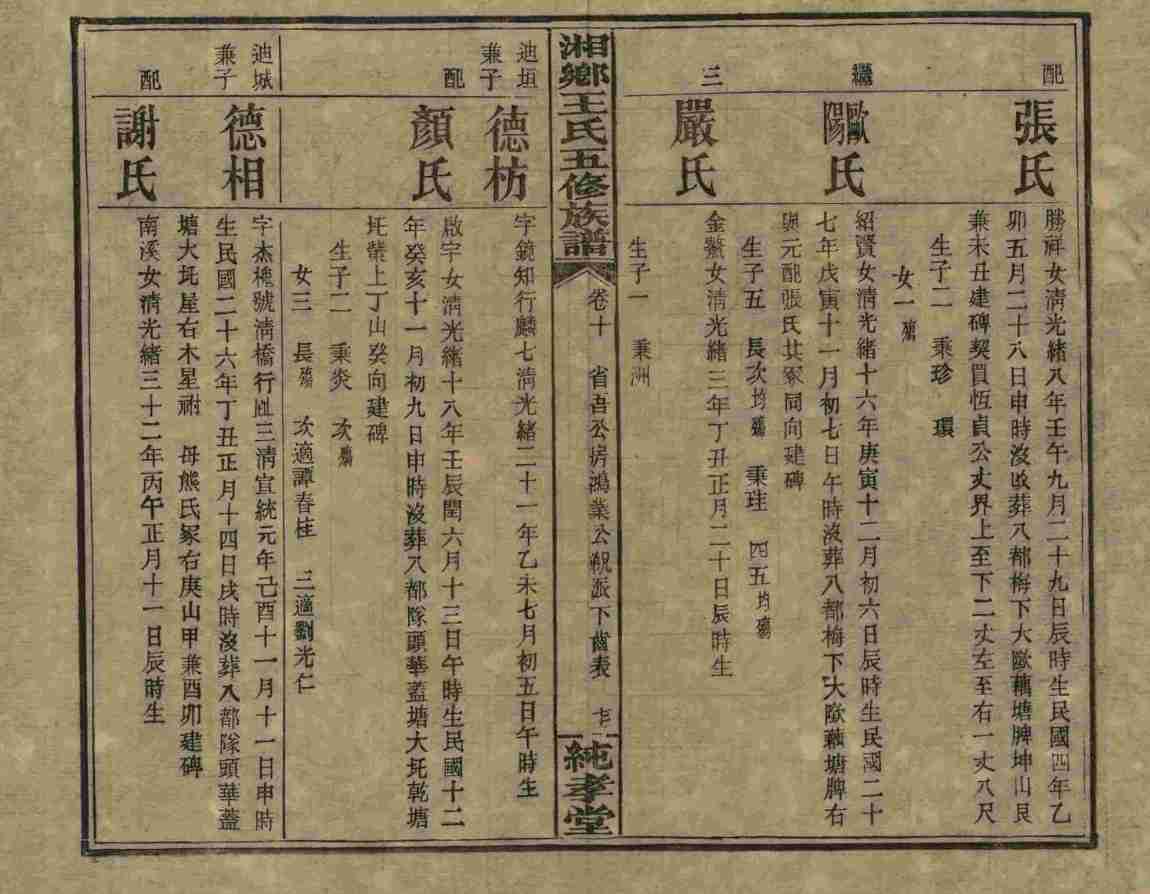 配
張氏
勝祥女清光緒八年壬午九月二十九日辰時生民國四年乙
卯五月二十八日申時沒葬八都梅下大歐藕塘脾坤山艮
兼未丑建碑契買恆貞公丈界上至下二丈左至右一丈八尺
生子二 秉珍 璜
女一殤
繼
歐陽氏
紹賢女清光緒十六年庚寅十二月初六日辰時生民國二十
七年戊寅十一月初七日午時沒葬八都梅下大歐藕塘脾右
與元配張氏共冢同向建碑
生子五 長次均殤 秉珪 四五均殤
三
嚴氏
金鰲女清光緒三年丁丑正月二十日辰時生
生子一 秉洲
湘鄉王氏五修族譜
卷十 省吾公房鴻業公派下齒表
純孝堂
迪垣
兼子
德枋
字鏡知行麟七清光緒二十一年乙未七月初五日午時生
配
顏氏
啟宇女清光緒十八年壬辰閏六月十三日午時生民國十二
年癸亥十一月初九日申時沒葬八都隊頭華蓋塘大坵乾塘
坵墈上丁山癸向建碑
生子二 秉炎 次殤
女三 長殤 次適譚春桂 三適劉光仁
迪城
兼子
德相
字杰槐號清橋行三清宣統元年己酉十一月十一日申時
生民國二十六年丁丑正月十四日戌時沒葬八都隊頭華蓋
塘大坵屋右木星祔 母熊氏冢右庚山甲兼酉卯建碑
配
謝氏
南溪女清光緒三十二年丙午正月十一日辰時生